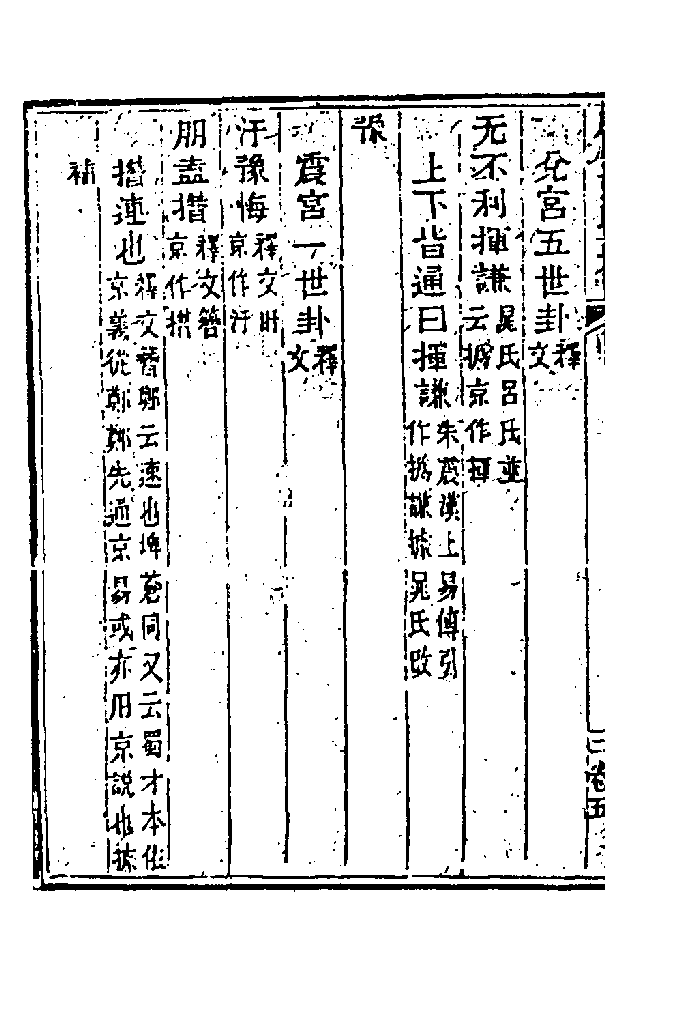 兌宮五世卦釋文
无不利揮謙晁氏呂氏並云撝京作揮
上下皆通曰揮謙朱震漢上易傳引作撝謙據晁氏改
豫
震宮一世卦釋文
汙豫悔釋文盱京作汙
朋盍撍釋文簪京作撍
撍連也釋文簪鄭云速也埤蒼同又云蜀才本依京義從鄭鄭先通京易或亦用京說也據
補
卷五